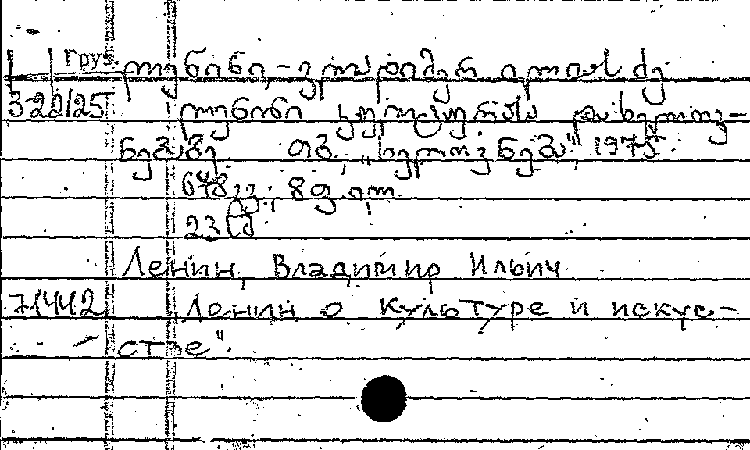 Груз. ლენინი, ვლადიმერ ილიას ძე
322/25 ლენინი კულტურისა და ხელოვ-
ნებაზე. თბ., „ხელოვნება", 1975.
678 გვ.; 8 ფ. ილ.
23 სმ.
Ленин, Владимир Ильич
71442 Ленин о культуре и искус-
стве".